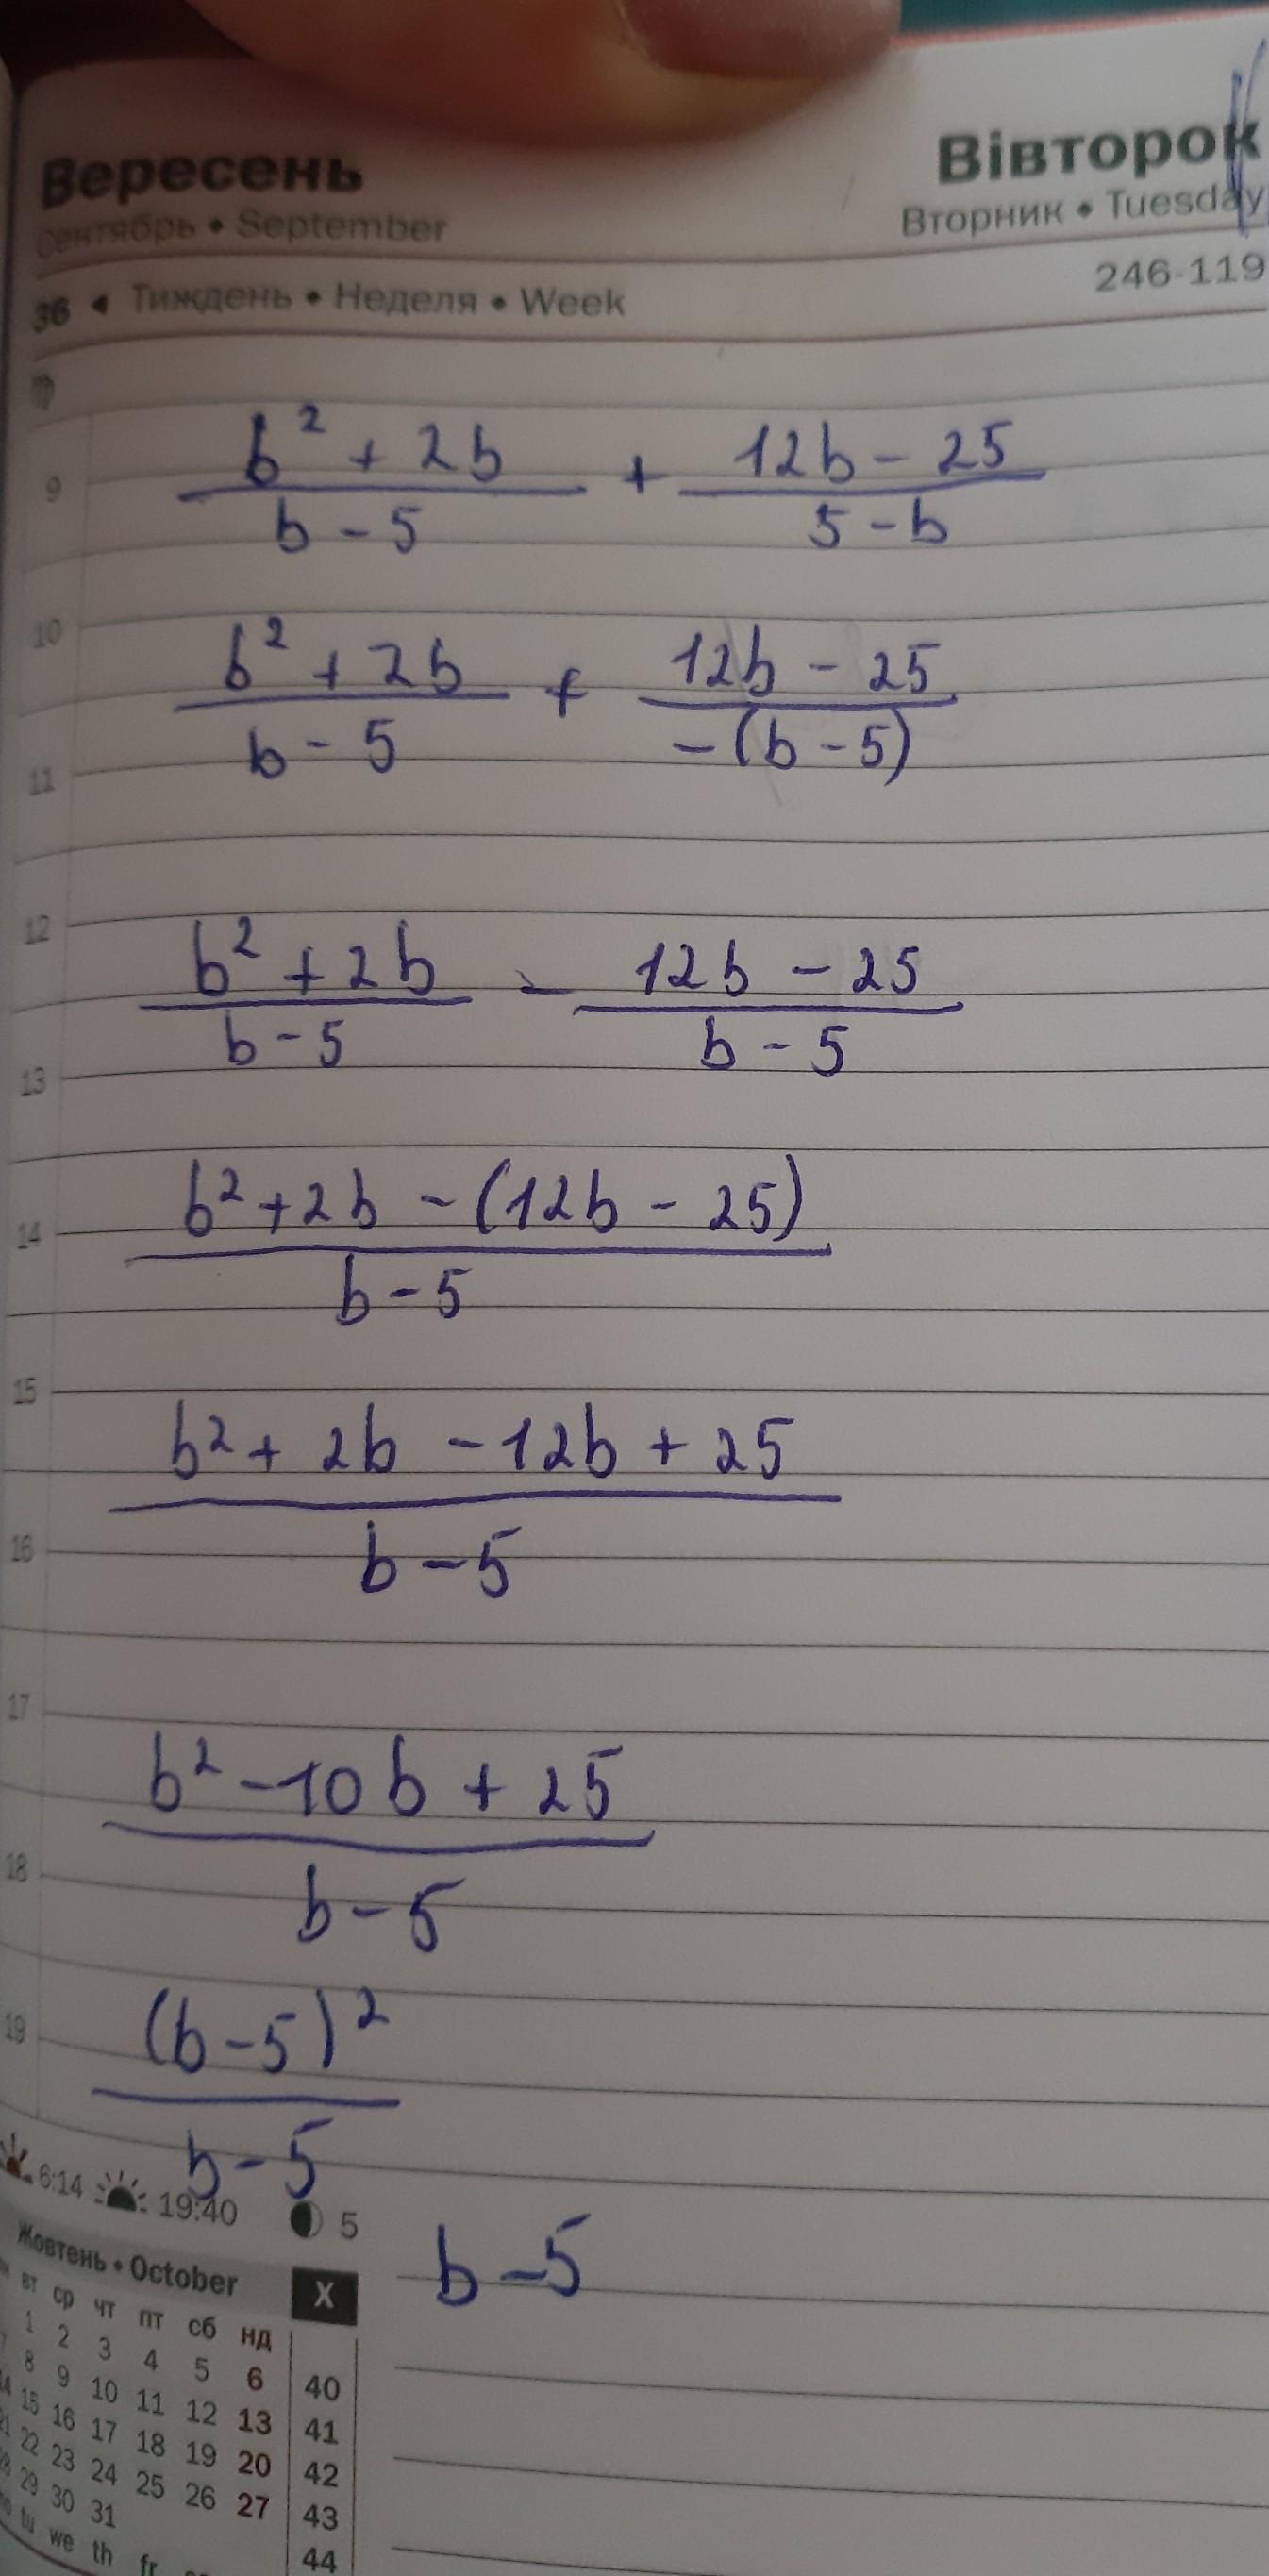 Вересень
Сентябрь • September
Вівторок
Вторник • Tuesday
36 ◄ Тиждень • Неделя • Week
246-119
9
b² + 2b / b - 5 + 12b - 25 / 5 - b
10
b² + 2b / b - 5 + 12b - 25 / -(b - 5)
11
12
b² + 2b / b - 5 - 12b - 25 / b - 5
13
b² + 2b - (12b - 25) / b - 5
14
15
b² + 2b - 12b + 25 / b - 5
16
17
b² - 10b + 25 / b - 5
18
(b - 5)² / b - 5
19
6:14 19:40 5
b - 5
Жовтень • October X
вт ср чт пт сб нд
1 2 3 4 5 6 40
8 9 10 11 12 13 41
15 16 17 18 19 20 42
22 23 24 25 26 27 43
29 30 31 44
tu we th fr